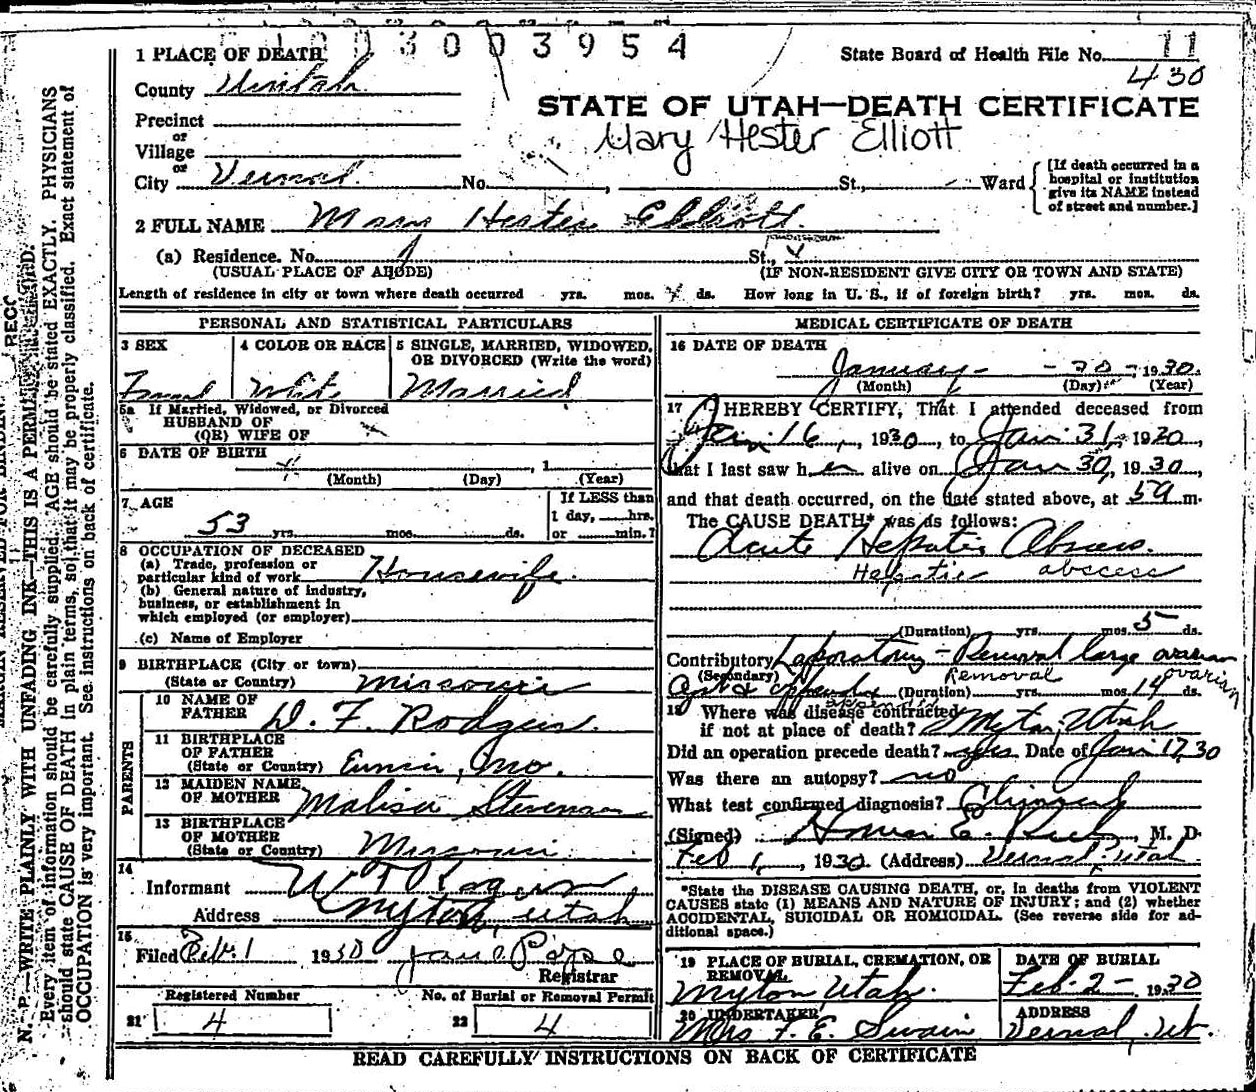 1003003954
1 PLACE OF DEATH State Board of Health File No. 11
430
County Uintah
STATE OF UTAH—DEATH CERTIFICATE
Precinct
Mary Hester Elliott
or
Village
or
City Vernal No. , St., Ward
[If death occurred in a
hospital or institution
give its NAME instead
of street and number.]
2 FULL NAME Mary Hester Elliott
(a) Residence. No. St.,
(USUAL PLACE OF ABODE) (IF NON-RESIDENT GIVE CITY OR TOWN AND STATE)
Length of residence in city or town where death occurred yrs. mos. ds. How long in U. S., if of foreign birth? yrs. mos. ds.
PERSONAL AND STATISTICAL PARTICULARS
3 SEX 4 COLOR OR RACE 5 SINGLE, MARRIED, WIDOWED,
OR DIVORCED (Write the word)
Female White Married
5a If Married, Widowed, or Divorced
HUSBAND OF
(OR) WIFE OF
6 DATE OF BIRTH , 1
(Month) (Day) (Year)
7 AGE If LESS than
1 day, hrs.
53 yrs. mos. ds. or min.?
8 OCCUPATION OF DECEASED
(a) Trade, profession or
particular kind of work Housewife.
(b) General nature of industry,
business, or establishment in
which employed (or employer)
(c) Name of Employer
9 BIRTHPLACE (City or town)
(State or Country) Missouri
PARENTS
10 NAME OF
FATHER
11 BIRTHPLACE
OF FATHER
(State or Country) Mo.
12 MAIDEN NAME
OF MOTHER Malisa
13 BIRTHPLACE
OF MOTHER
(State or Country) Missouri
14
Informant
Address Myton, Utah
15
Filed Feb. 1 1930
Registrar
Registered Number No. of Burial or Removal Permit
21 4 22 4
MEDICAL CERTIFICATE OF DEATH
16 DATE OF DEATH
January - 30 - 1930.
(Month) (Day) (Year)
17 I HEREBY CERTIFY, That I attended deceased from
Jan. 16, 1930, to Jan. 31, 1930,
that I last saw her alive on Jan 30, 1930,
and that death occurred, on the date stated above, at m.
The CAUSE DEATH* was as follows:
Acute Hepatic Abscess.
Hepatic abscess
(Duration) yrs. mos. 5 ds.
Contributory Laporatomy - Removal large ovarian
(Secondary) Removal ovarian
appendix (Duration) yrs. mos. 14 ds.
18 Where was disease contracted
if not at place of death? Myton, Utah
Did an operation precede death? yes Date of Jan 17, 30
Was there an autopsy? no
What test confirmed diagnosis?
(Signed) E. , M. D.
Feb 1, 1930 (Address) Vernal, Utah
*State the DISEASE CAUSING DEATH, or, in deaths from VIOLENT
CAUSES state (1) MEANS AND NATURE OF INJURY; and (2) whether
ACCIDENTAL, SUICIDAL OR HOMICIDAL. (See reverse side for ad-
ditional space.)
19 PLACE OF BURIAL, CREMATION, OR DATE OF BURIAL
REMOVAL
Myton, Utah. Feb. 2 - 1930
20 UNDERTAKER ADDRESS
Mrs F. E. Swain Vernal, Ut.
READ CAREFULLY INSTRUCTIONS ON BACK OF CERTIFICATE
N. B.—WRITE PLAINLY WITH UNFADING INK—THIS IS A PERMANENT RECORD.
Every item of information should be carefully supplied. AGE should be stated EXACTLY. PHYSICIANS
should state CAUSE OF DEATH in plain terms, so that it may be properly classified. Exact statement of
OCCUPATION is very important. See instructions on back of certificate.